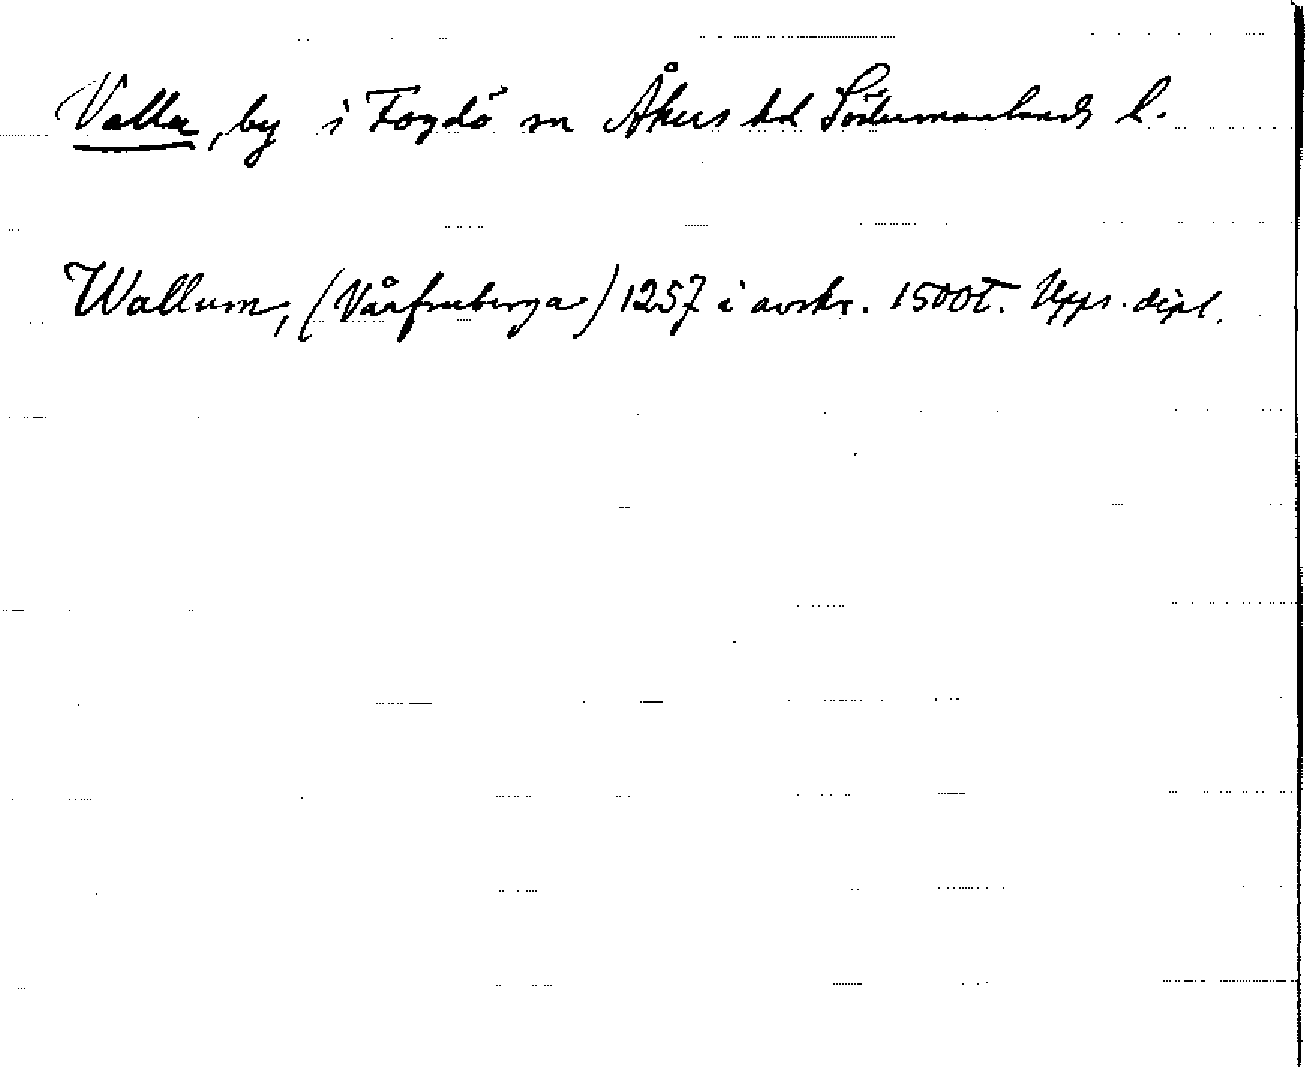 Valla, by i Fogdö sn Åkers hd Södermanlands l.
Wallum, (Vårfruberga) 1257 i avskr. 1500t. Upps. dipl.